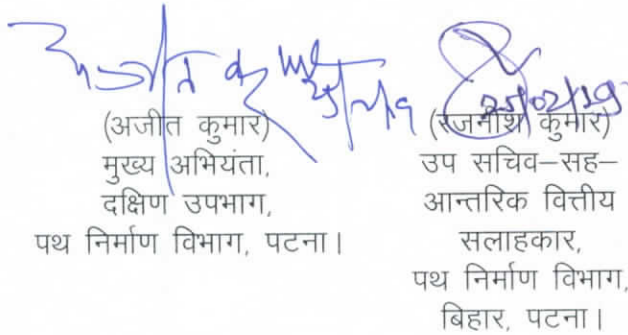 अजीत कुमार
25/2/19
25/02/19
(अजीत कुमार)
मुख्य अभियंता,
दक्षिण उपभाग,
पथ निर्माण विभाग, पटना।
(रजनीश कुमार)
उप सचिव–सह–
आन्तरिक वित्तीय
सलाहकार,
पथ निर्माण विभाग,
बिहार, पटना।